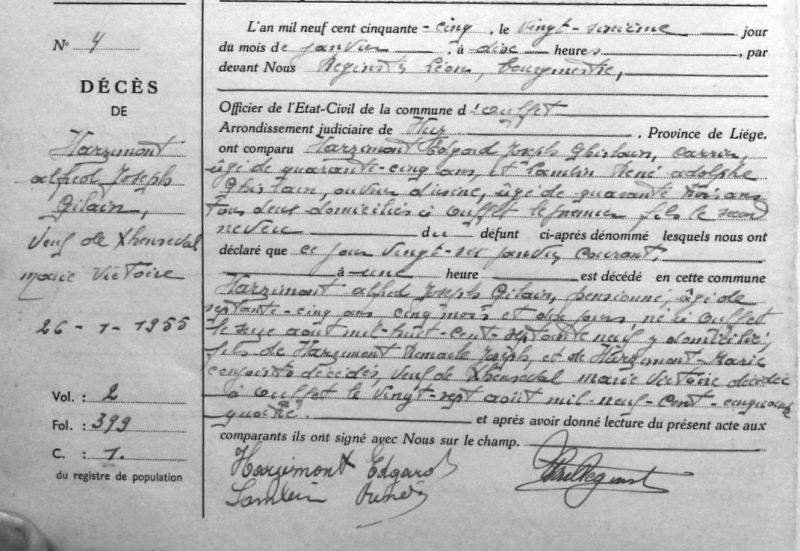 N° 4
DÉCÈS
DE
Harzimont
alfred Joseph
Gilain,
veuf de Xhenseval
marie Victoire
26 - 1 - 1955
Vol. : 2
Fol. : 399
C. : 1.
du registre de population
L'an mil neuf cent cinquante - cinq, le vingt-sixième jour
du mois de janvier, à dix heures, par
devant Nous Léon, bourgmestre,
Officier de l'Etat-Civil de la commune d'Ouffet
Arrondissement judiciaire de Huy, Province de Liége,
ont comparu Harzimont Edgard Joseph Ghislain, carrier,
âgé de quarante-cinq ans, et Lambin René adolphe
Ghislain, ouvrier d'usine, âgé de quarante trois ans
tous deux domiciliés à Ouffet le premier fils le second
neveu du défunt ci-après dénommé lesquels nous ont
déclaré que ce jour vingt-six janvier courant,
à une heure est décédé en cette commune
Harzimont alfred Joseph Gilain, pensionné, âgé de
septante-cinq ans cinq mois et dix jours, né à Ouffet
le seize août mil-huit-cent-septante neuf y domicilié,
fils de Harzimont Joseph, et de Harzimont Marie
conjoints décédés, veuf de Xhenseval marie Victoire décédée
à Ouffet le vingt-sept août mil-neuf-cent-cinquante
quatre. et après avoir donné lecture du présent acte aux
comparants ils ont signé avec Nous sur le champ.
Harzimont Edgard
Lambin René